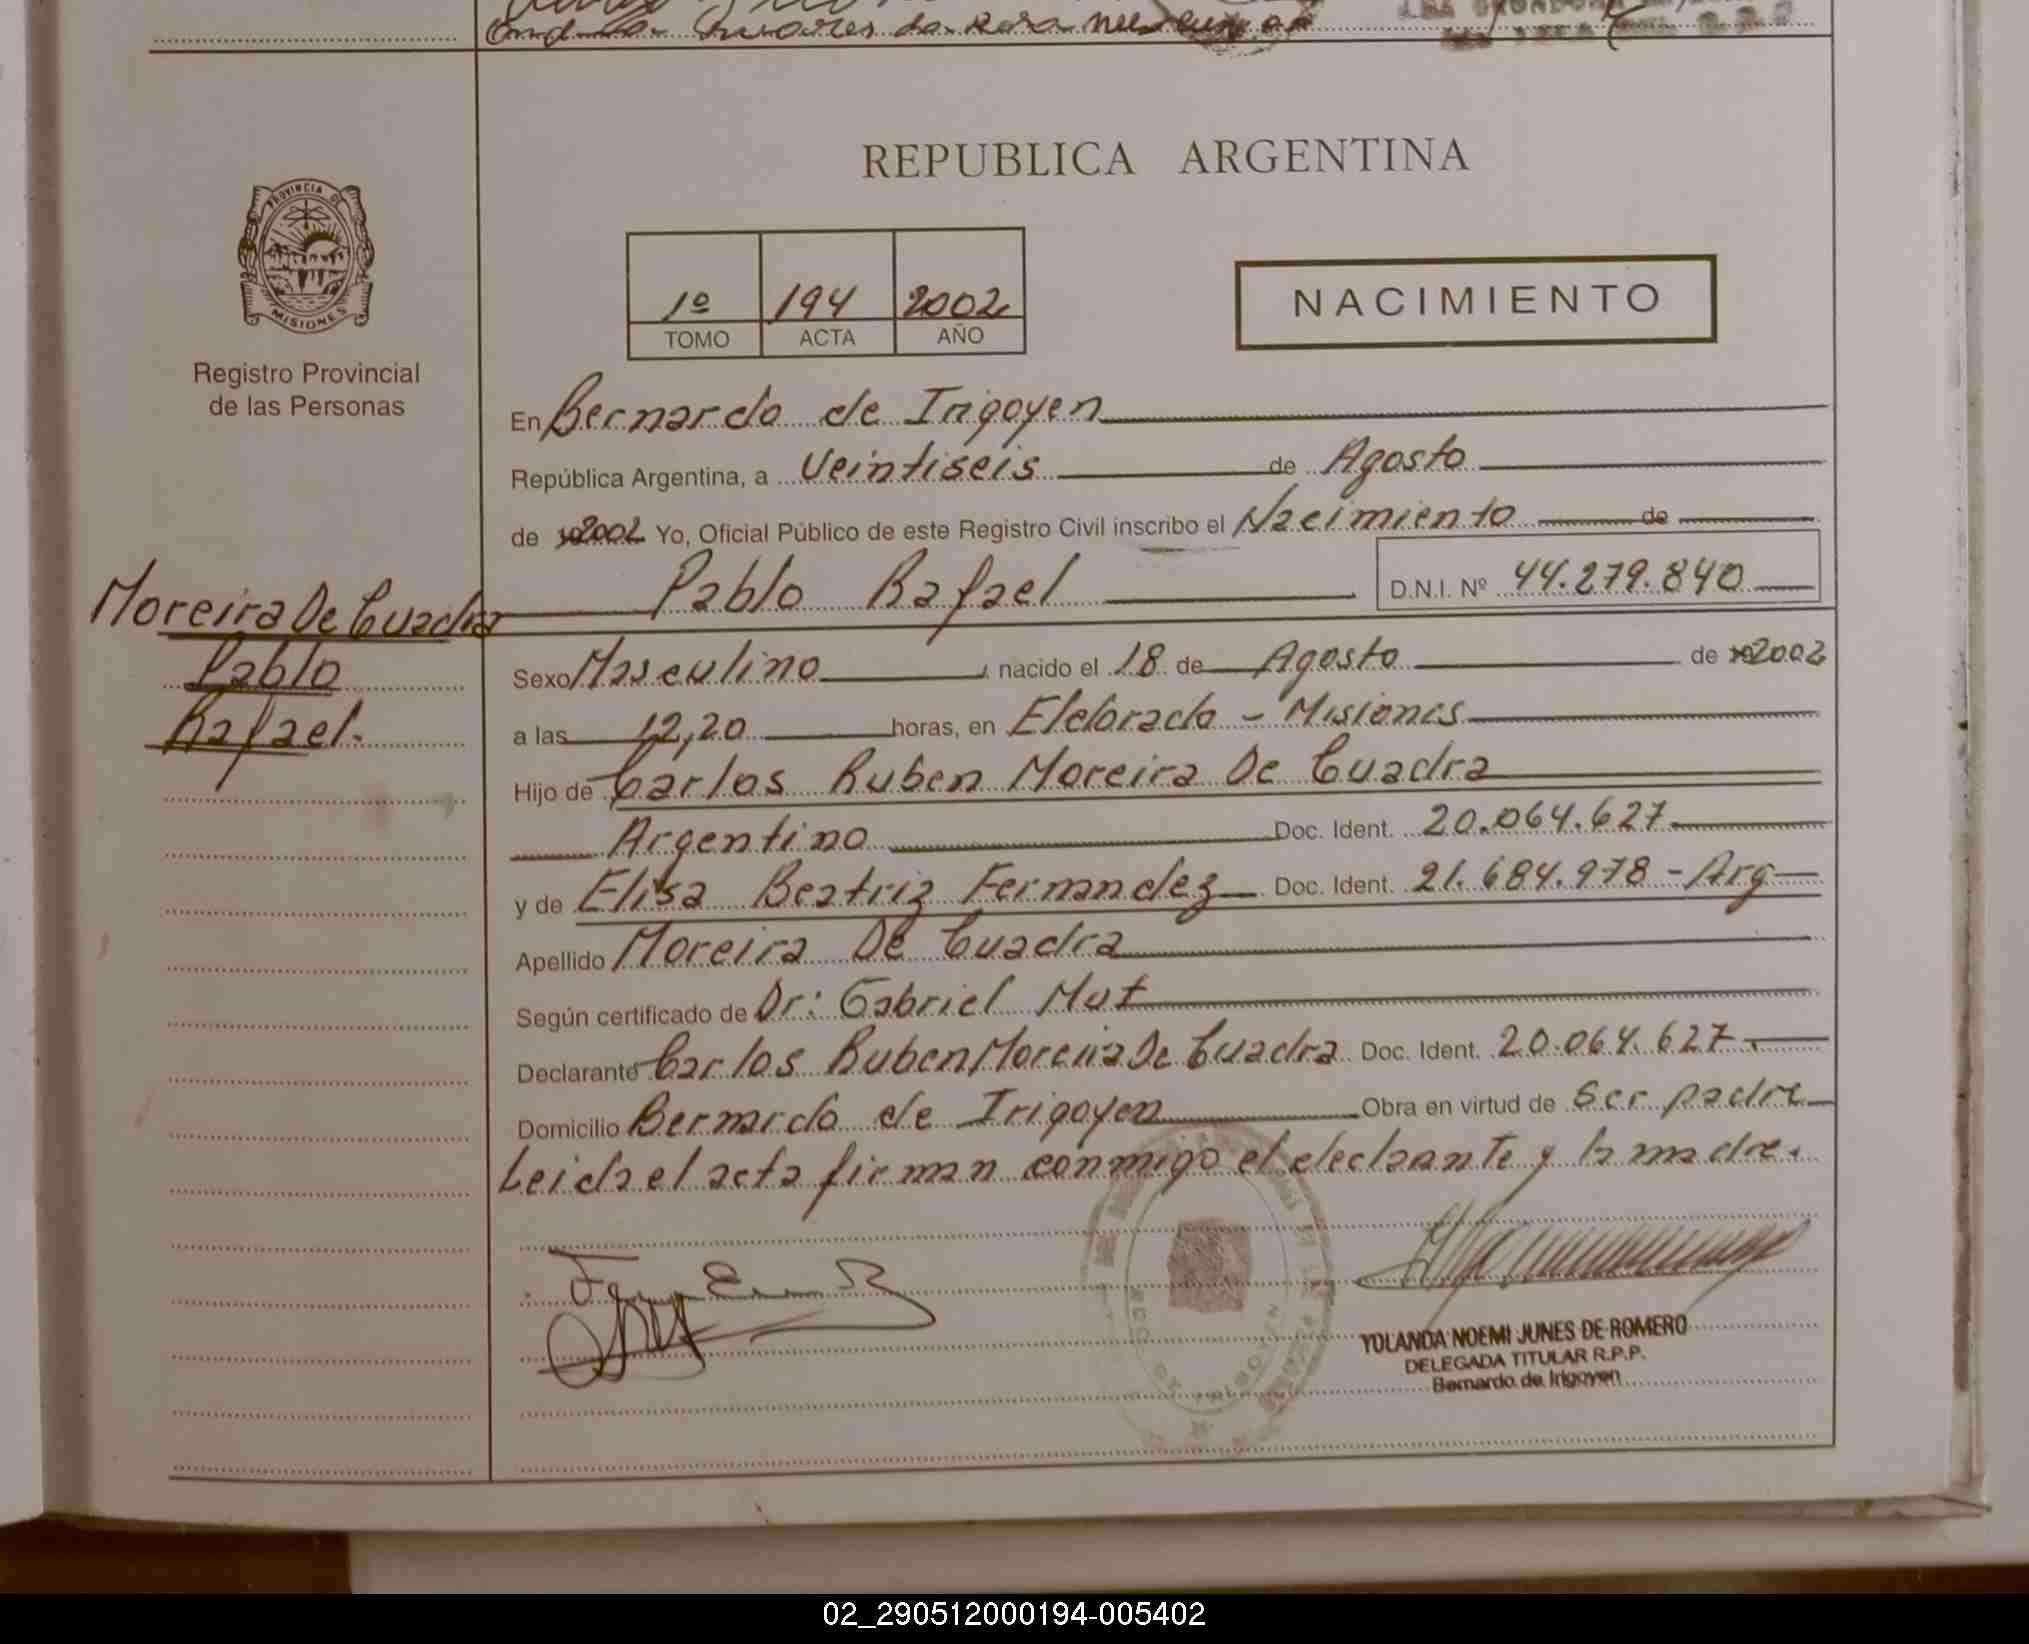 REPUBLICA ARGENTINA
PROVINCIA DE
MISIONES
Registro Provincial
de las Personas
1º 194 2002
TOMO ACTA AÑO
NACIMIENTO
En Bernardo de Irigoyen
República Argentina, a Veintiseis de Agosto
de 2002 Yo, Oficial Público de este Registro Civil inscribo el Nacimiento de
Pablo Rafael D.N.I. Nº 44.279.840
Moreira De Cuadra
Pablo
Rafael.
Sexo Masculino, nacido el 18 de Agosto de 2002
a las 12,20 horas, en Eldorado - Misiones
Hijo de Carlos Ruben Moreira De Cuadra
Argentino Doc. Ident. 20.064.627
y de Elisa Beatriz Fernandez Doc. Ident. 21.684.978 - Arg
Apellido Moreira De Cuadra
Según certificado de Dr: Gabriel Mut
Declarante Carlos Ruben Moreira De Cuadra Doc. Ident. 20.064.627.
Domicilio Bernardo de Irigoyen Obra en virtud de ser padre
Leida el acta firman conmigo el declarante y la madre.
YOLANDA NOEMI JUNES DE ROMERO
DELEGADA TITULAR R.P.P.
Bernardo de Irigoyen
02_290512000194-005402